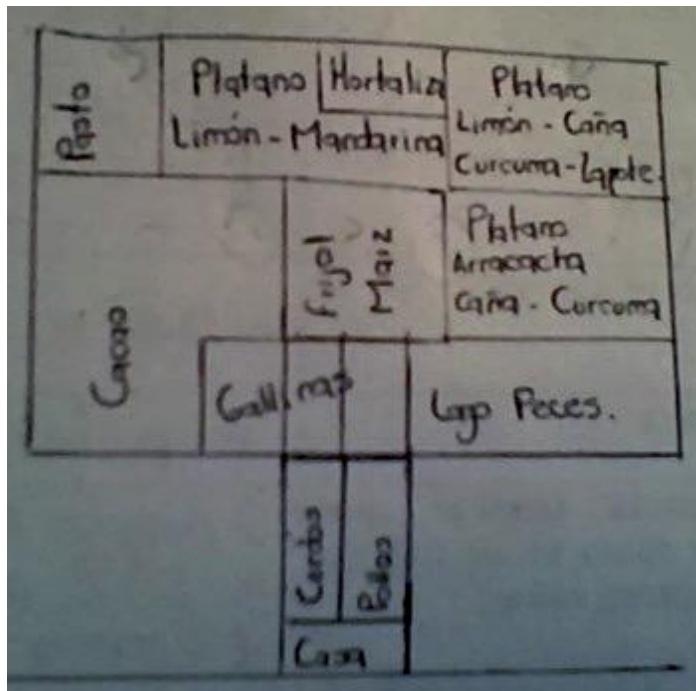 Pasto
Platano
Hortaliza
Limón - Mandarina
Platano
Limón - Caña
Curcuma - Zapote
Cacao
Frijol
Maiz
Platano
Arracacha
Caña - Curcuma
Gallinas
Lago Peces.
Cerdos
Pollos
Casa